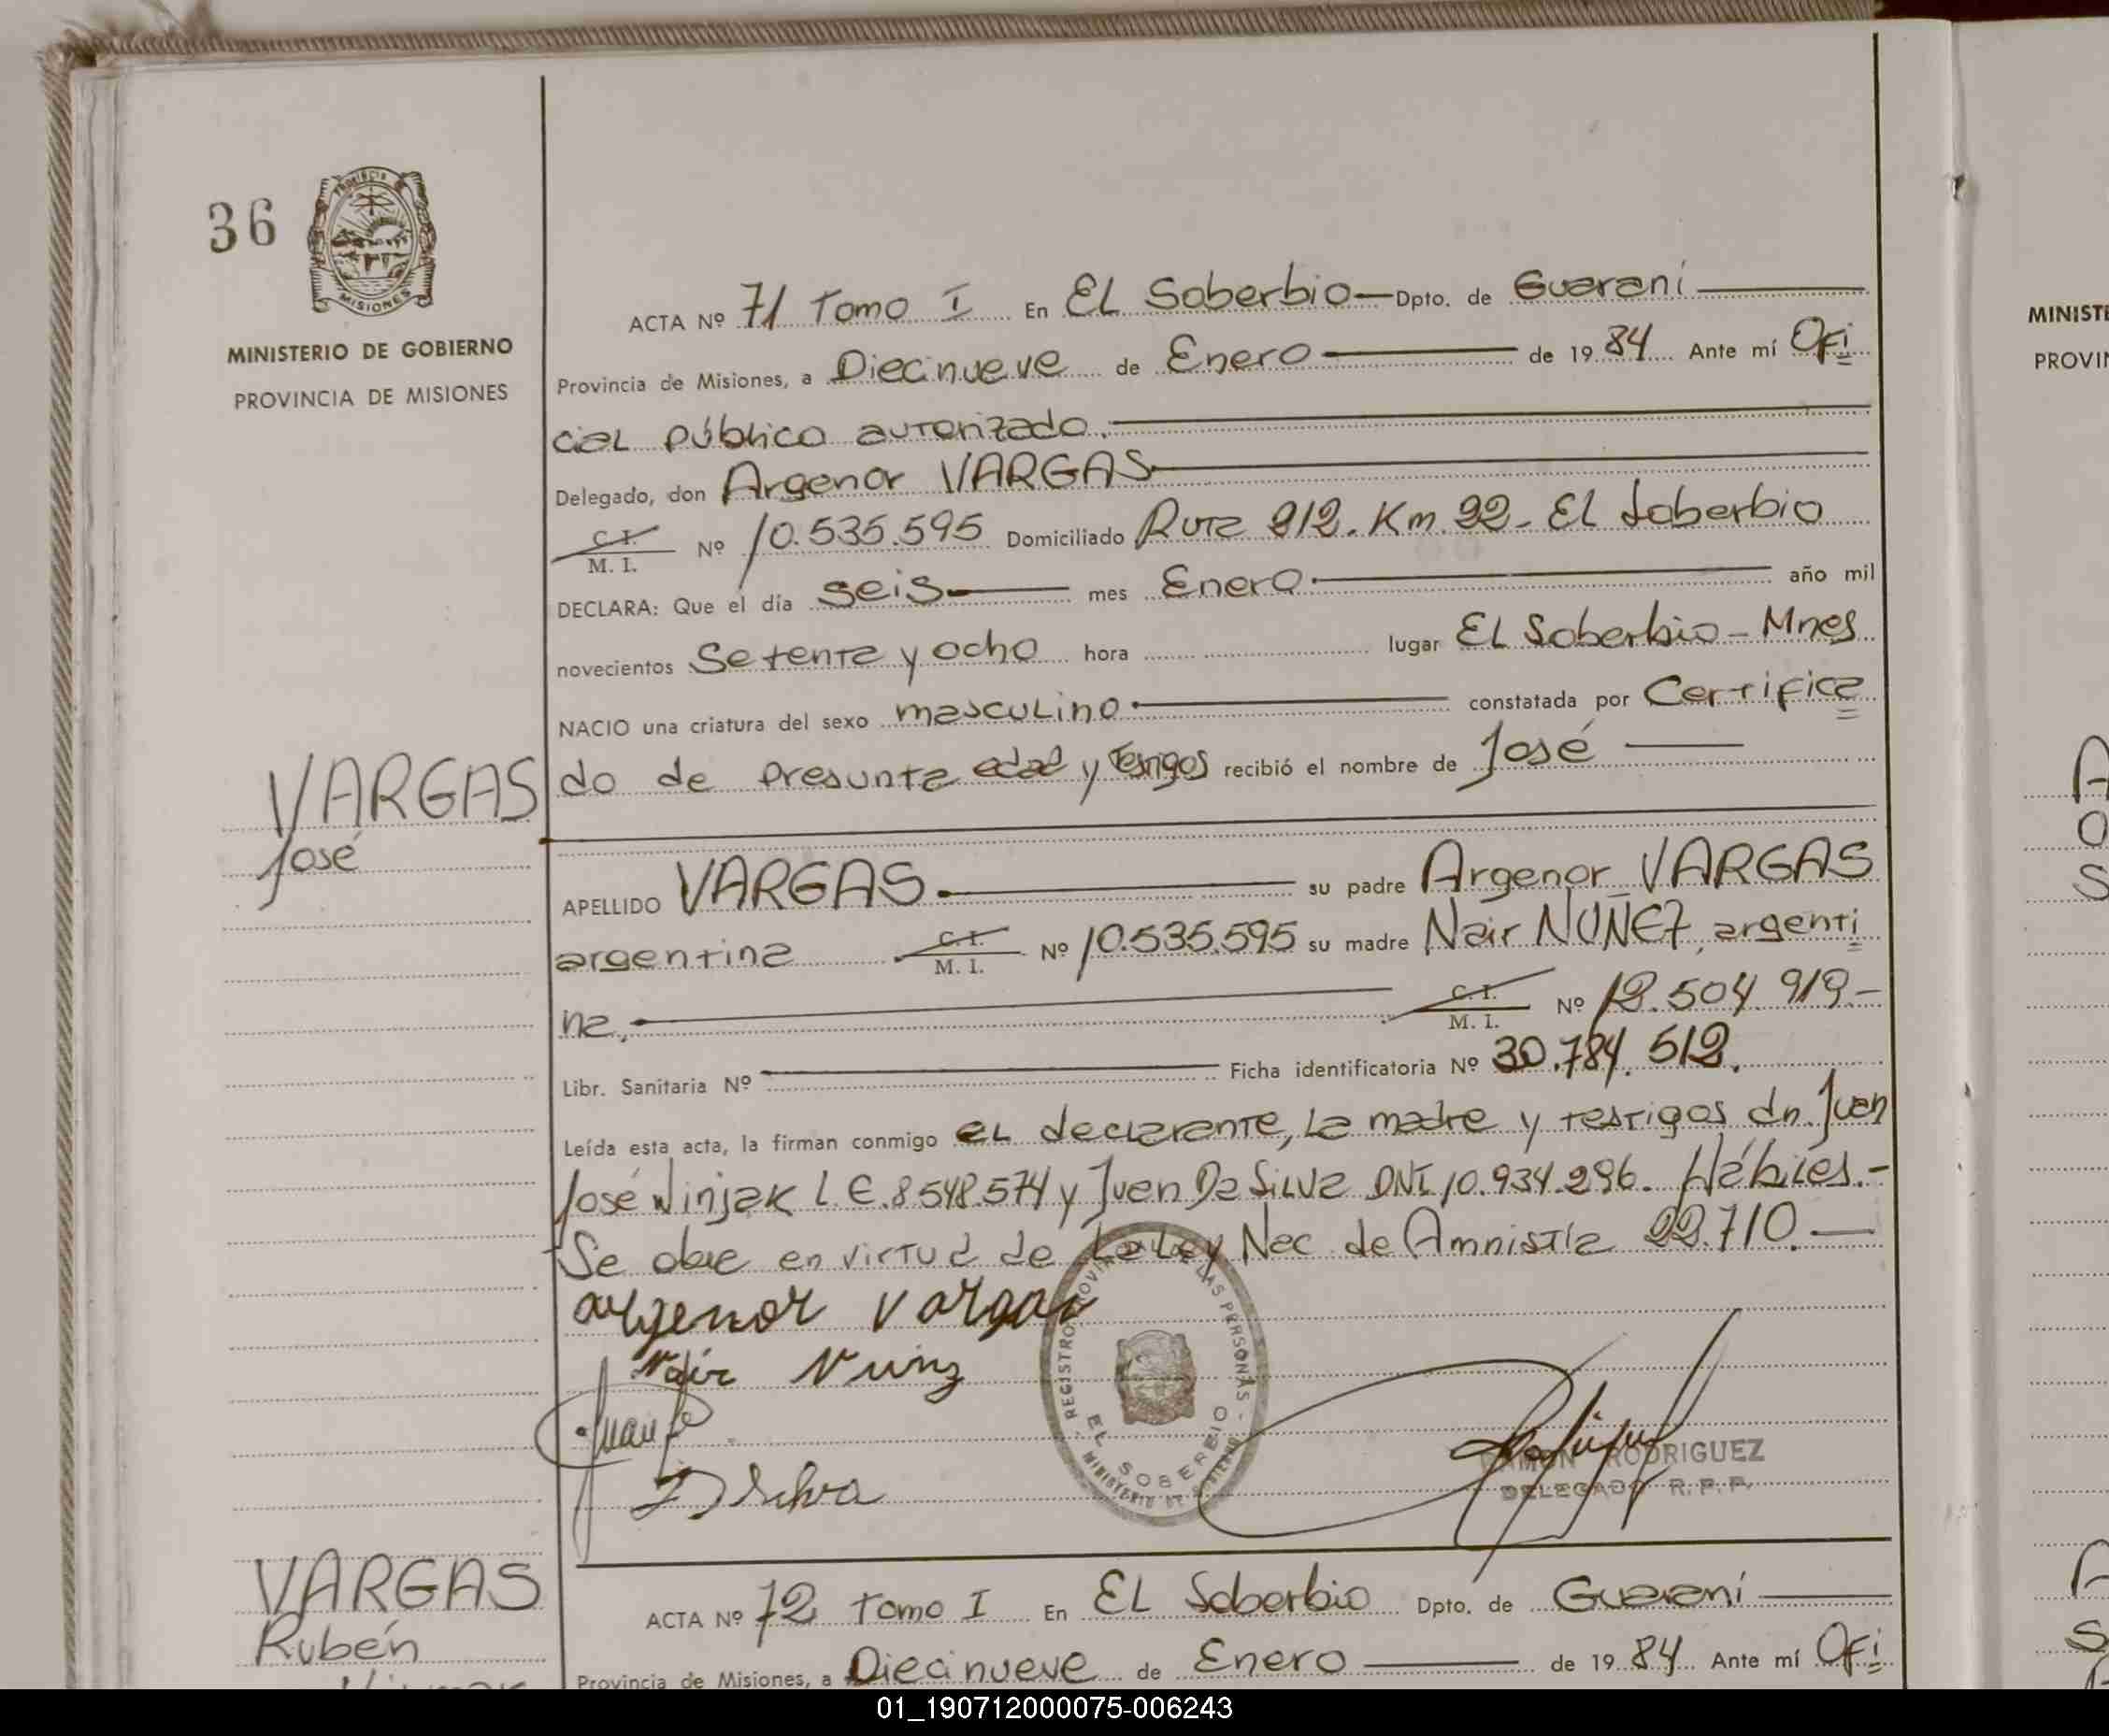 36
PROVINCIA
MISIONES
MINISTERIO DE GOBIERNO
PROVINCIA DE MISIONES
ACTA Nº 71 Tomo I En EL Soberbio Dpto. de Guaraní
Provincia de Misiones, a Diecinueve de Enero de 1984 Ante mí Ofi
cial público autorizado.
Delegado, don Argenor VARGAS
C. I. M. I. Nº 10.535.595 Domiciliado Ruta 212. Km. 22- El Soberbio
DECLARA: Que el día seis mes Enero año mil
novecientos Setenta y ocho hora lugar EL Soberbio - Mnes
NACIO una criatura del sexo masculino constatada por Certifica
do de presunta edad y Testigos recibió el nombre de José
VARGAS
José
APELLIDO VARGAS su padre Argenor VARGAS
argentina C. I. M. I. Nº 10.535.595 su madre Nair NUÑEZ, argenti
na, C. I. M. I. Nº 12.504.919.-
Libr. Sanitaria Nº Ficha identificatoria Nº 30.784.512.
Leída esta acta, la firman conmigo el declarante, la madre y testigos dn. Juan
José Ninjak L.E. 8.548.574 y Juan Da Silva DNI 10.934.296. Hábiles.-
Se obre en virtud de la Ley Nac de Amnistía 22.710.
argenor vargas
Nair Nuñz
Juan
D Silva
REGISTRO PROVINCIAL DE LAS PERSONAS
EL SOBERBIO
MINISTERIO DE GOBIERNO
RAMON RODRIGUEZ
DELEGADO R. P. P.
VARGAS
Rubén
ACTA Nº 72 Tomo I En EL Soberbio Dpto. de Guaraní
Provincia de Misiones, a Diecinueve de Enero de 1984 Ante mí Ofi
MINISTE
PROVIN
01_190712000075-006243